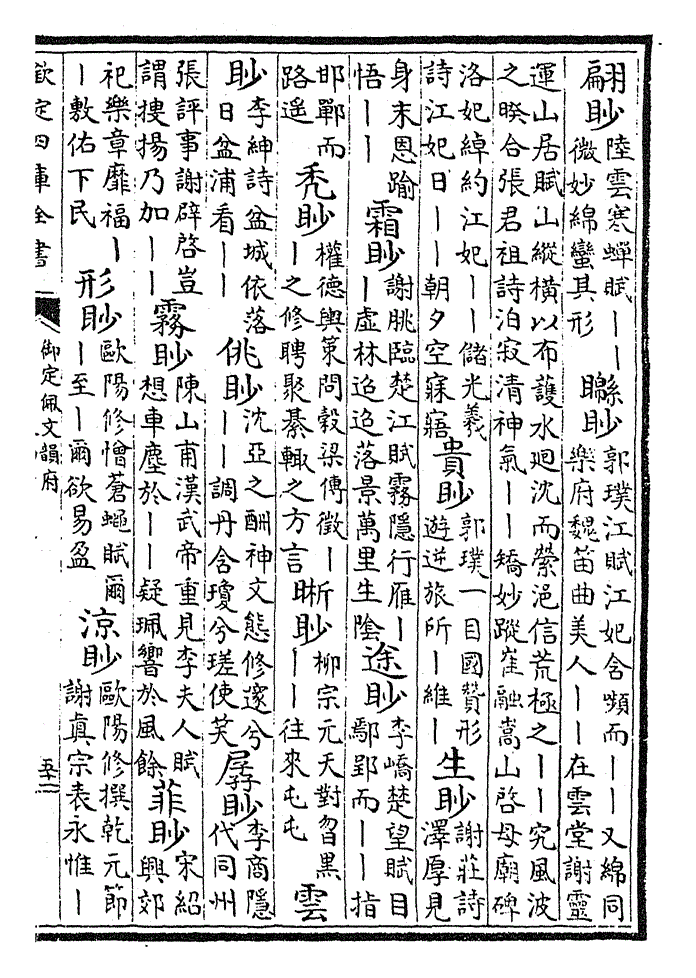 翩眇陸雲寒蟬賦｜｜微妙綿蠻其形緜眇郭璞江賦江妃含嚬而｜｜又綿同樂府魏笛曲美人｜｜在雲堂謝靈
運山居賦山縱横以布護水迴沈而縈浥信荒極之｜｜究風波之暌合張君祖詩泊寂清神氣｜｜矯妙蹤崔融嵩山啓母廟碑
洛妃綽約江妃｜｜儲光羲詩江妃日｜｜朝夕空寐寤貴眇郭璞一目國贊形遊逆旅所｜維｜生眇謝莊詩澤厚見
身末恩踰悟｜｜霜眇謝朓臨楚江賦霧隱行雁｜｜虚林迢迢落景萬里生陰途眇李嶠楚望賦目鄢郢而｜｜指
邯鄲而路遥秃眇權德輿策問榖梁傳徵｜｜之修聘聚綦輙之方言晣眇柳宗元天對曶黑｜｜往來屯屯雲
眇李紳詩盆城依落日盆浦看｜｜佻眇沈亞之酬神文態修邃兮｜｜調丹含瓊兮瑳使笑孱眇李商隱代同州
張評事謝辟啓豈謂搜揚乃加｜｜霧眇陳山甫漢武帝重見李夫人賦想車塵於｜｜疑珮響於風餘菲眇宋紹興郊
祀樂章靡福｜｜敷佑下民形眇歐陽修憎蒼蠅賦爾｜至｜爾欲易盈涼眇歐陽修撰乾元節謝真宗表永惟｜
欽定四庫全書
御定佩文韻府